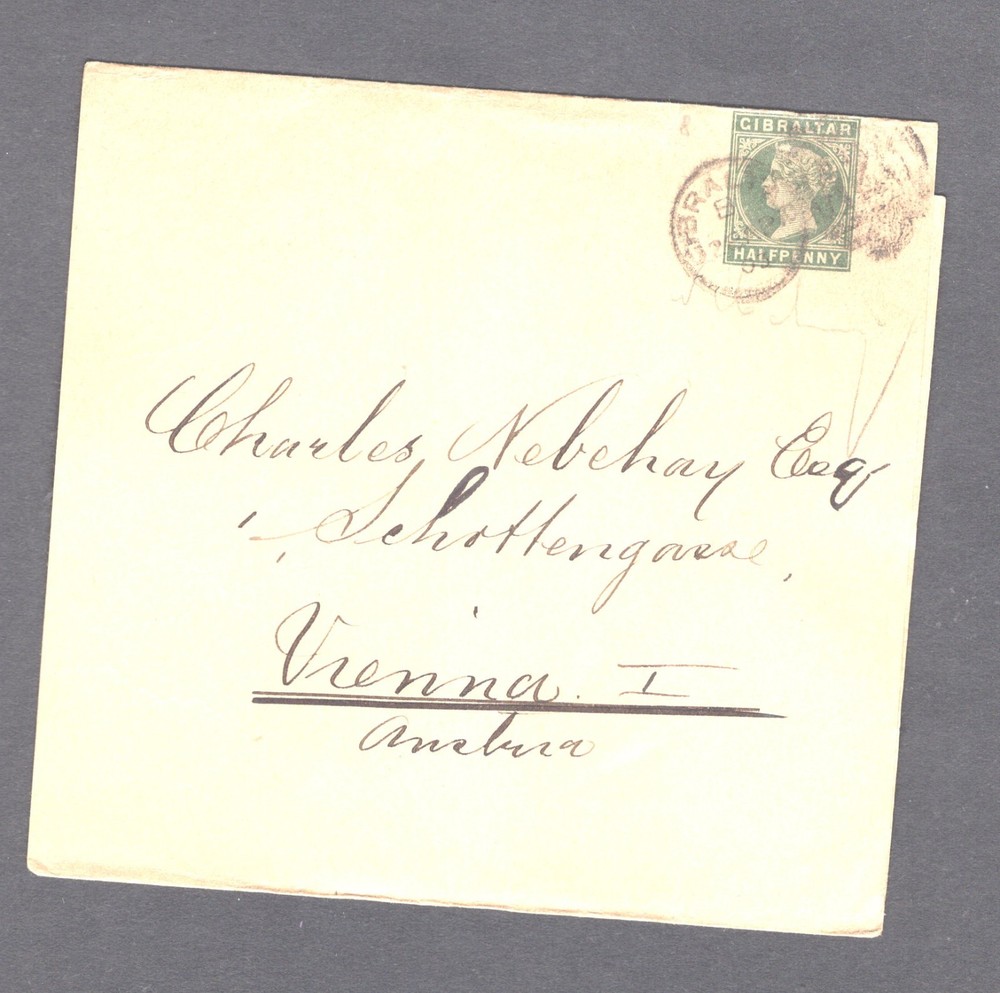 GIBRALTAR
HALFPENNY
Charles Nebehay Esq
Schottengasse,
Vienna. I
Austria